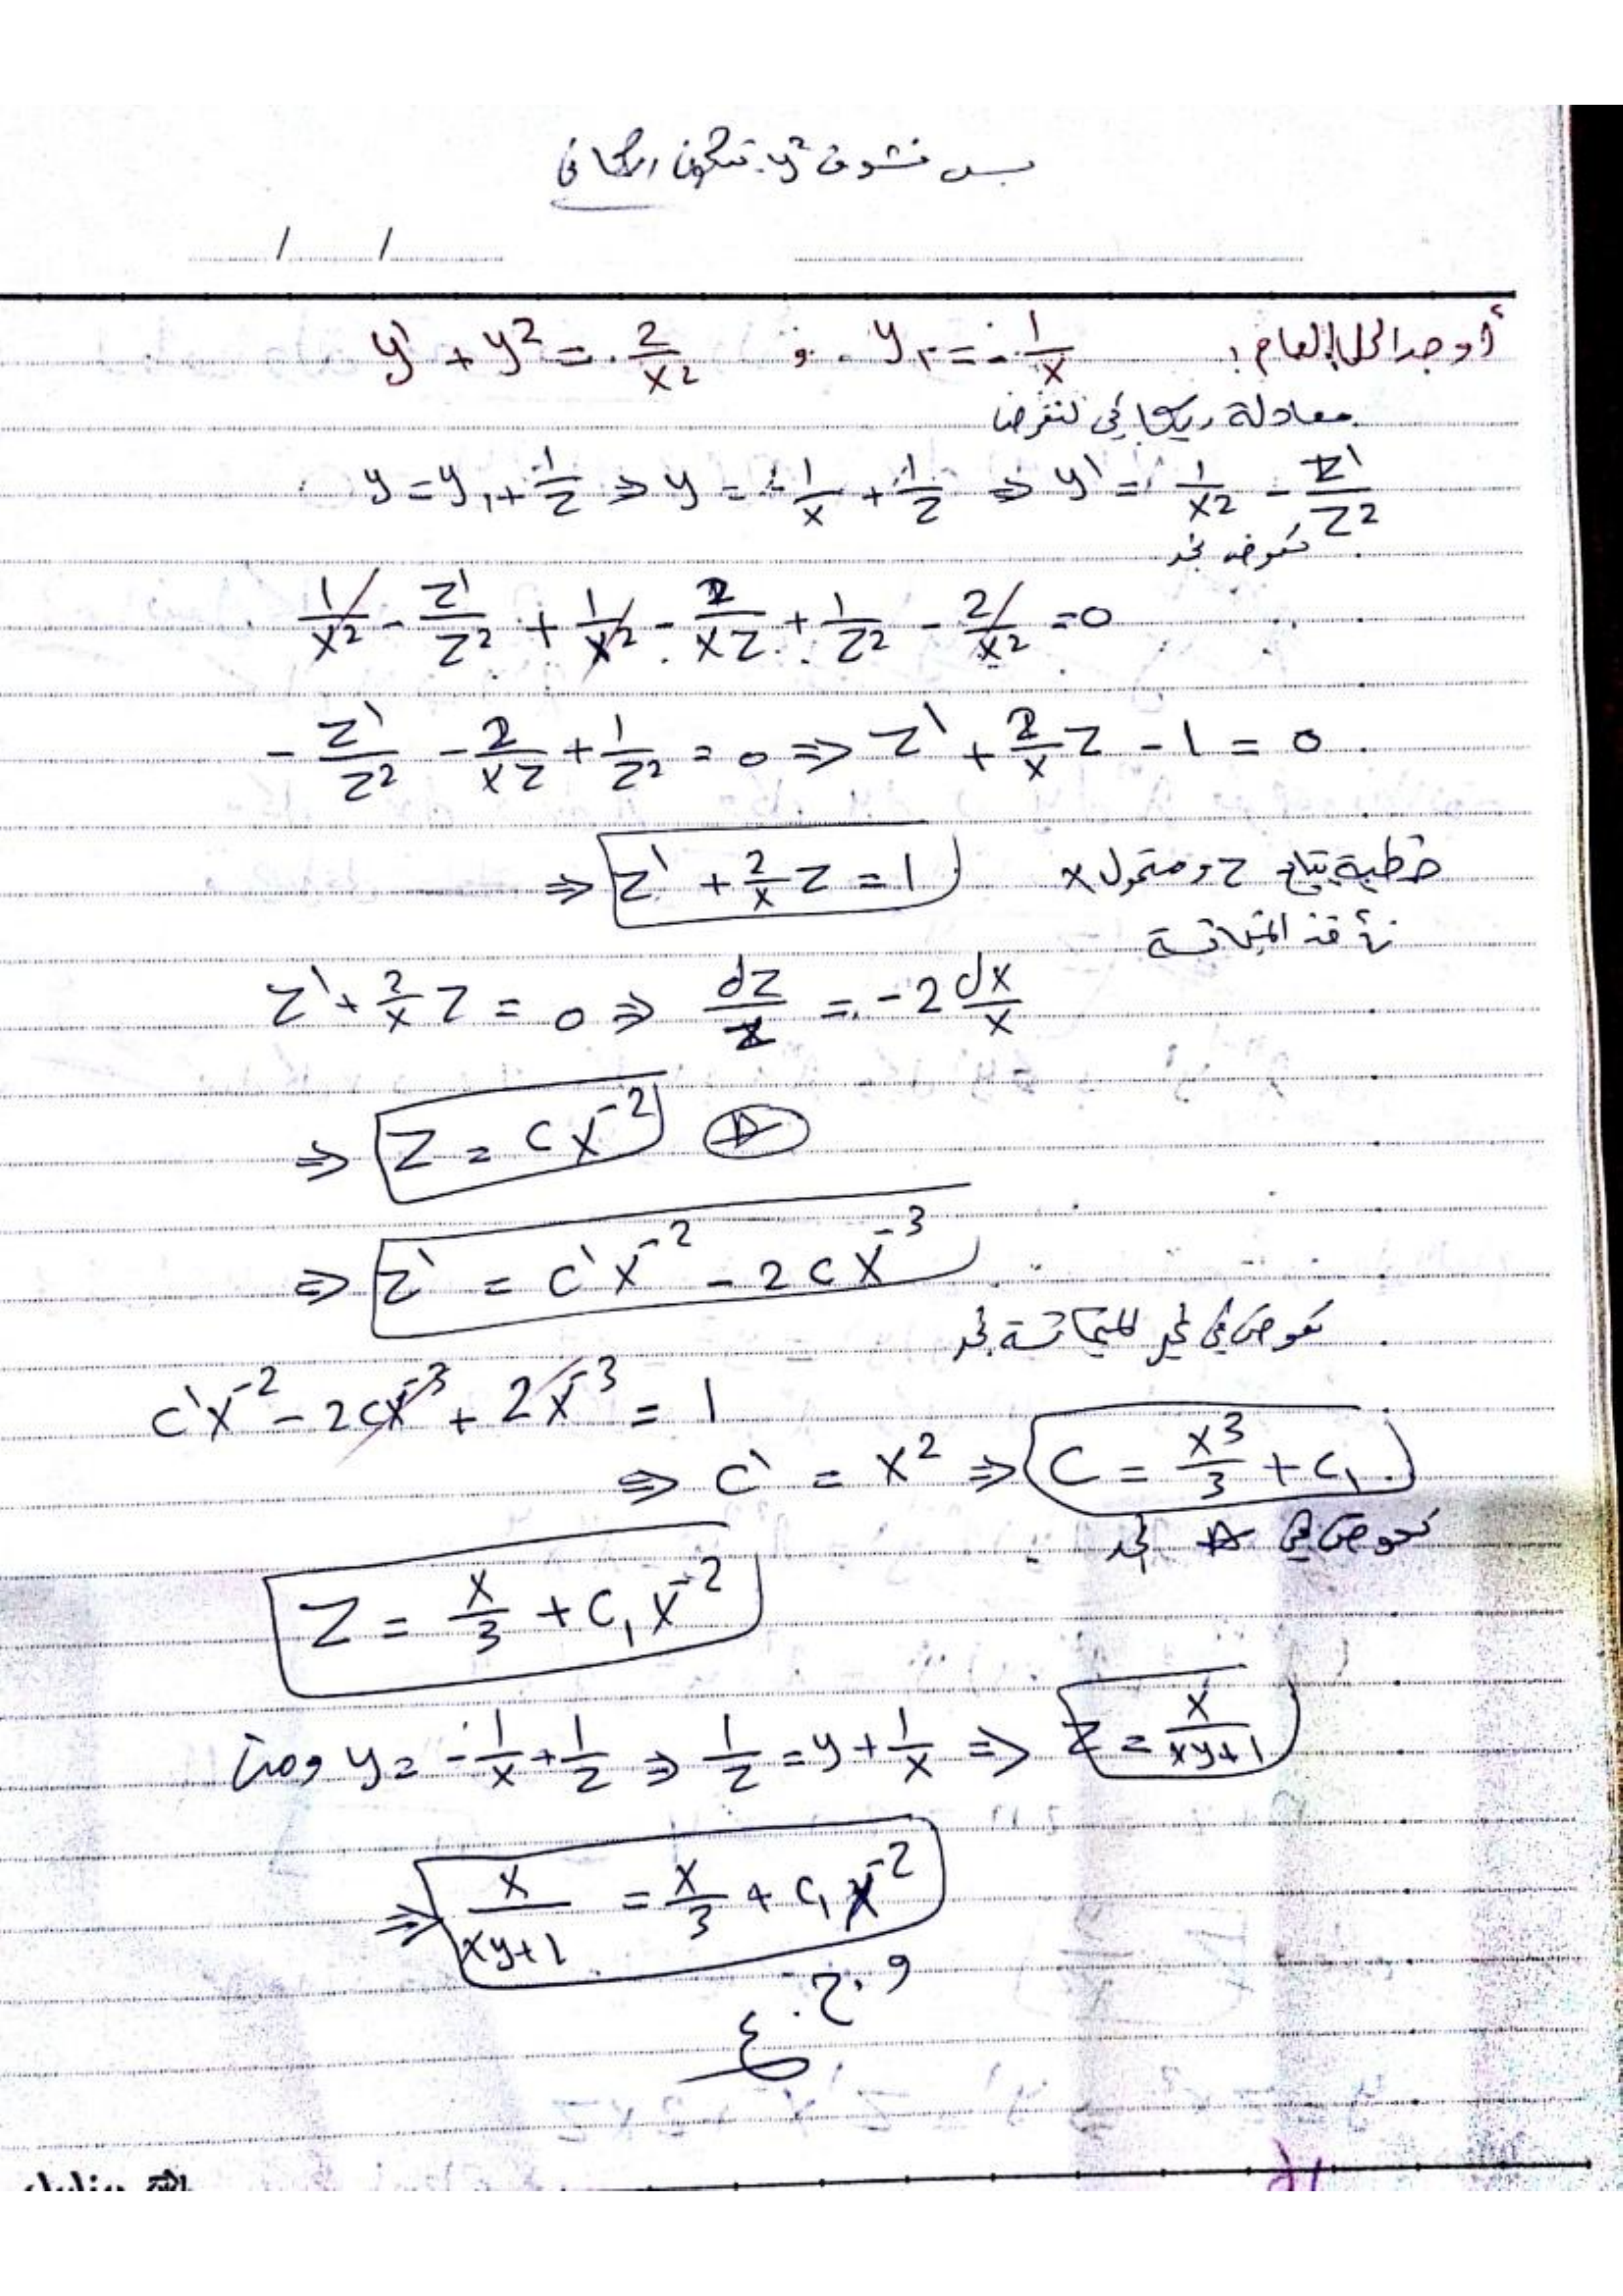 بس نشوف y² بتكون ريكاتي
/ /
أوجد الحل العام: y' + y² = 2/x² ; y₁ = -1/x
معادلة ريكاتي لنفرض
y = y₁ + 1/z ⇒ y = -1/x + 1/z ⇒ y' = 1/x² - z'/z²
نعوض نجد
1/x² - z'/z² + 1/x² - 2/xz + 1/z² - 2/x² = 0
-z'/z² - 2/xz + 1/z² = 0 ⇒ z' + 2/x z - 1 = 0
⇒ z' + 2/x z = 1 خطية بتابع z ومتحول x
نأخذ المتجانسة
z' + 2/x z = 0 ⇒ dz/z = -2 dx/x
⇒ z = c x⁻² ☆
⇒ z' = c' x⁻² - 2c x⁻³
نعوض في غير المتجانسة نجد
c' x⁻² - 2c x⁻³ + 2x⁻³ = 1
⇒ c' = x² ⇒ c = x³/3 + c₁
نعوض في ☆ نجد
z = x/3 + c₁ x⁻²
ومنه y = -1/x + 1/z ⇒ 1/z = y + 1/x ⇒ z = x/(xy+1)
⇒ x/(xy+1) = x/3 + c₁ x⁻²
و.ح.ع